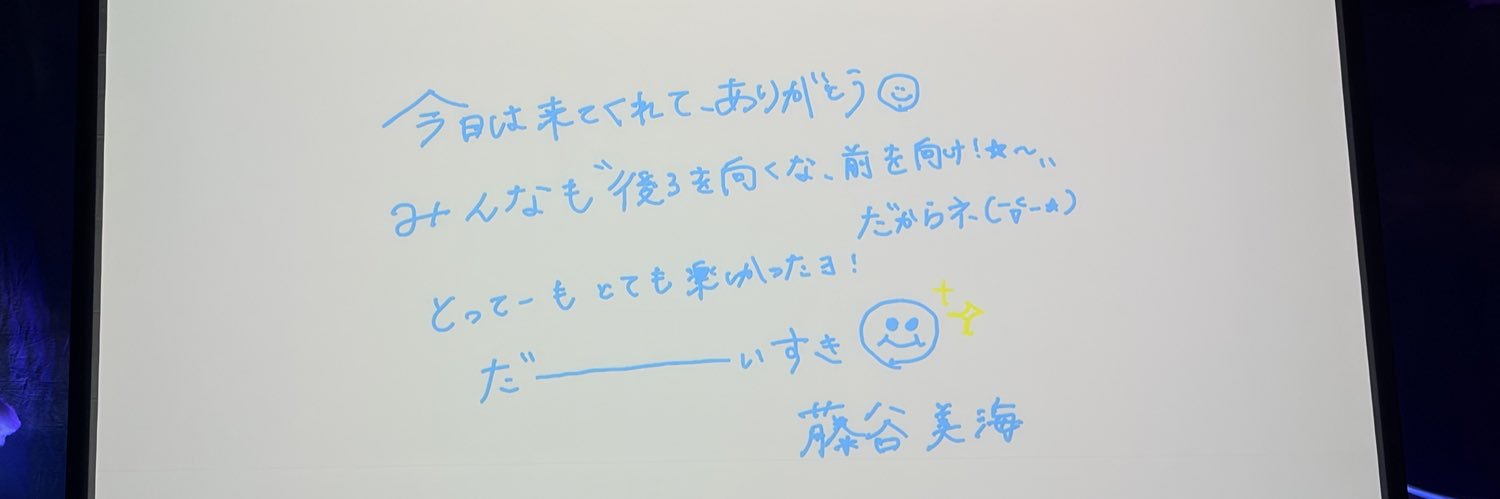 今日は来てくれて、ありがとう
みんなも"後ろを向くな、前を向け!☆〜"
だからネ
とってーも とても楽しかったヨ!
だ————いすき
藤谷美海